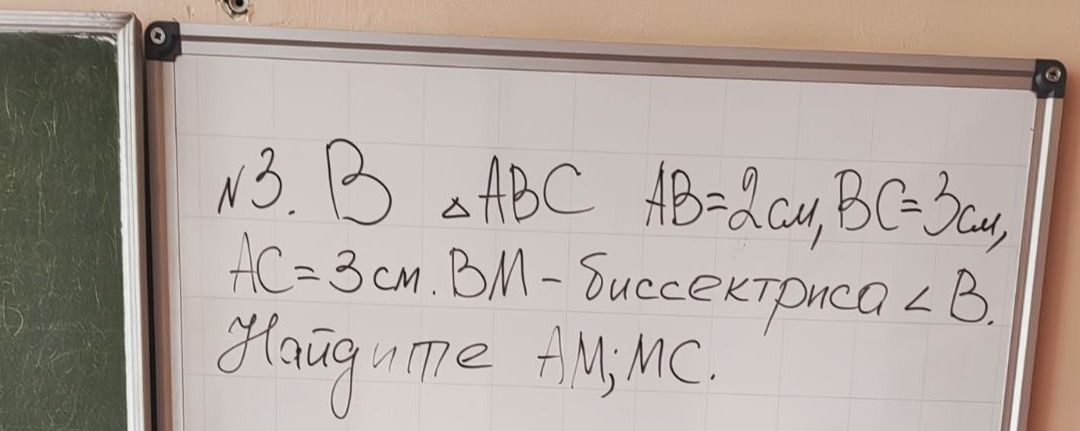 №3. В △ABC AB=2см, BC=3см,
AC=3см. BM - биссектриса < B.
Найдите AM; MC.